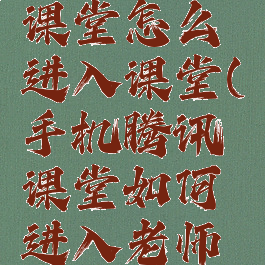 课堂怎么
进入课堂(
手机腾讯
课堂如何
进入老师